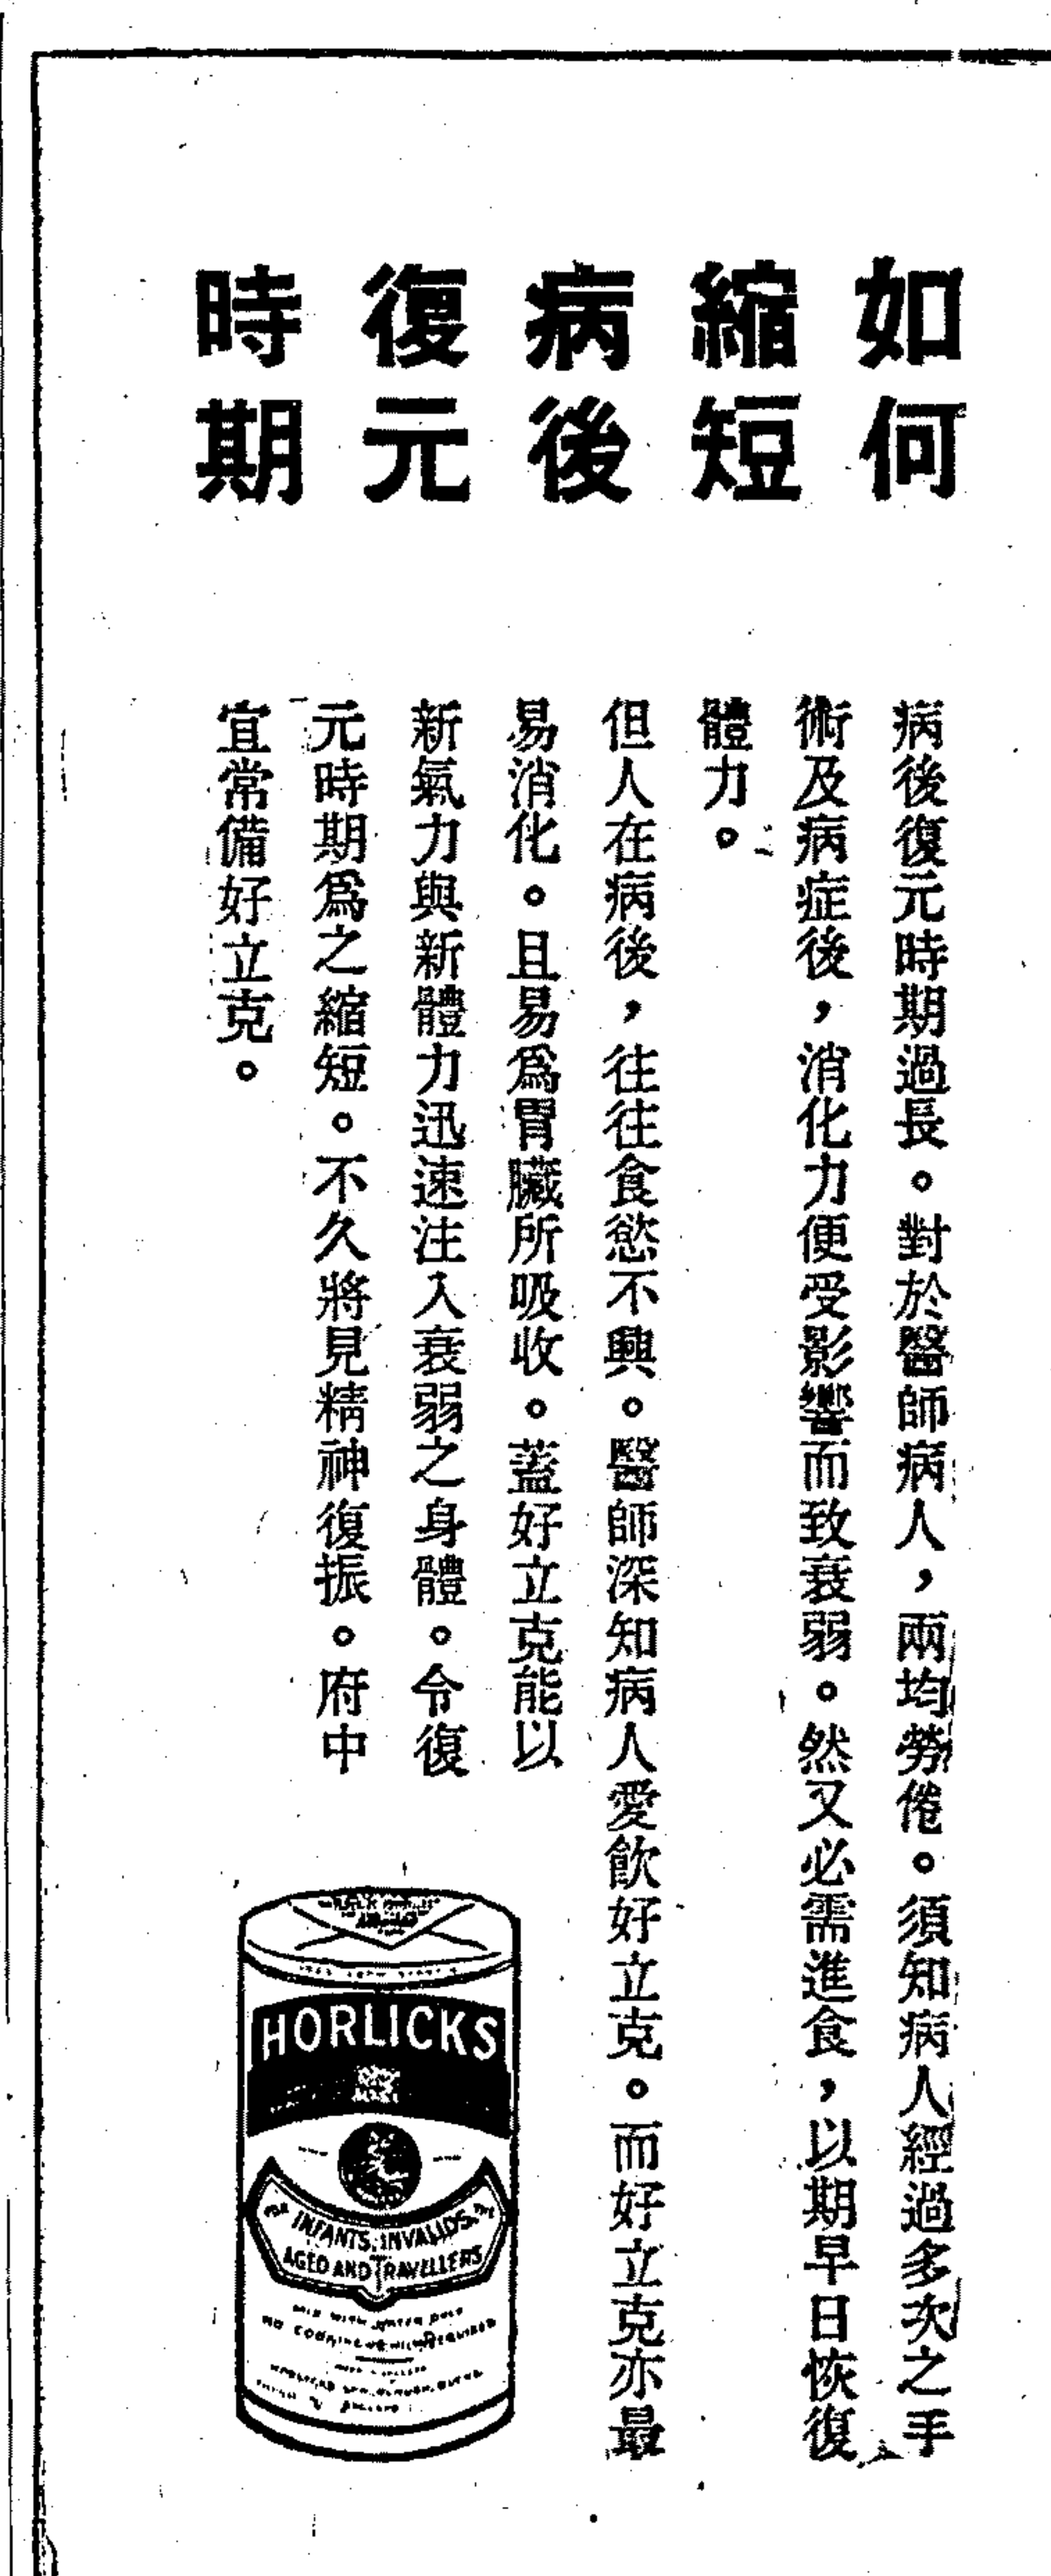 如何
縮短
病後
復元
時期
病後復元時期過長。對於醫師病人，兩均勞倦。須知病人經過多次之手
術及病症後，消化力便受影響而致衰弱。然又必需進食，以期早日恢復
體力。
但人在病後，往往食慾不興。醫師深知病人愛飲好立克。而好立克亦最
易消化。且易爲胃臟所吸收。蓋好立克能以
新氣力與新體力迅速注入衰弱之身體。令復
元時期爲之縮短。不久將見精神復振。府中
宜常備好立克。
HORLICKS
INFANTS, INVALIDS,
AGED AND TRAVELLERS